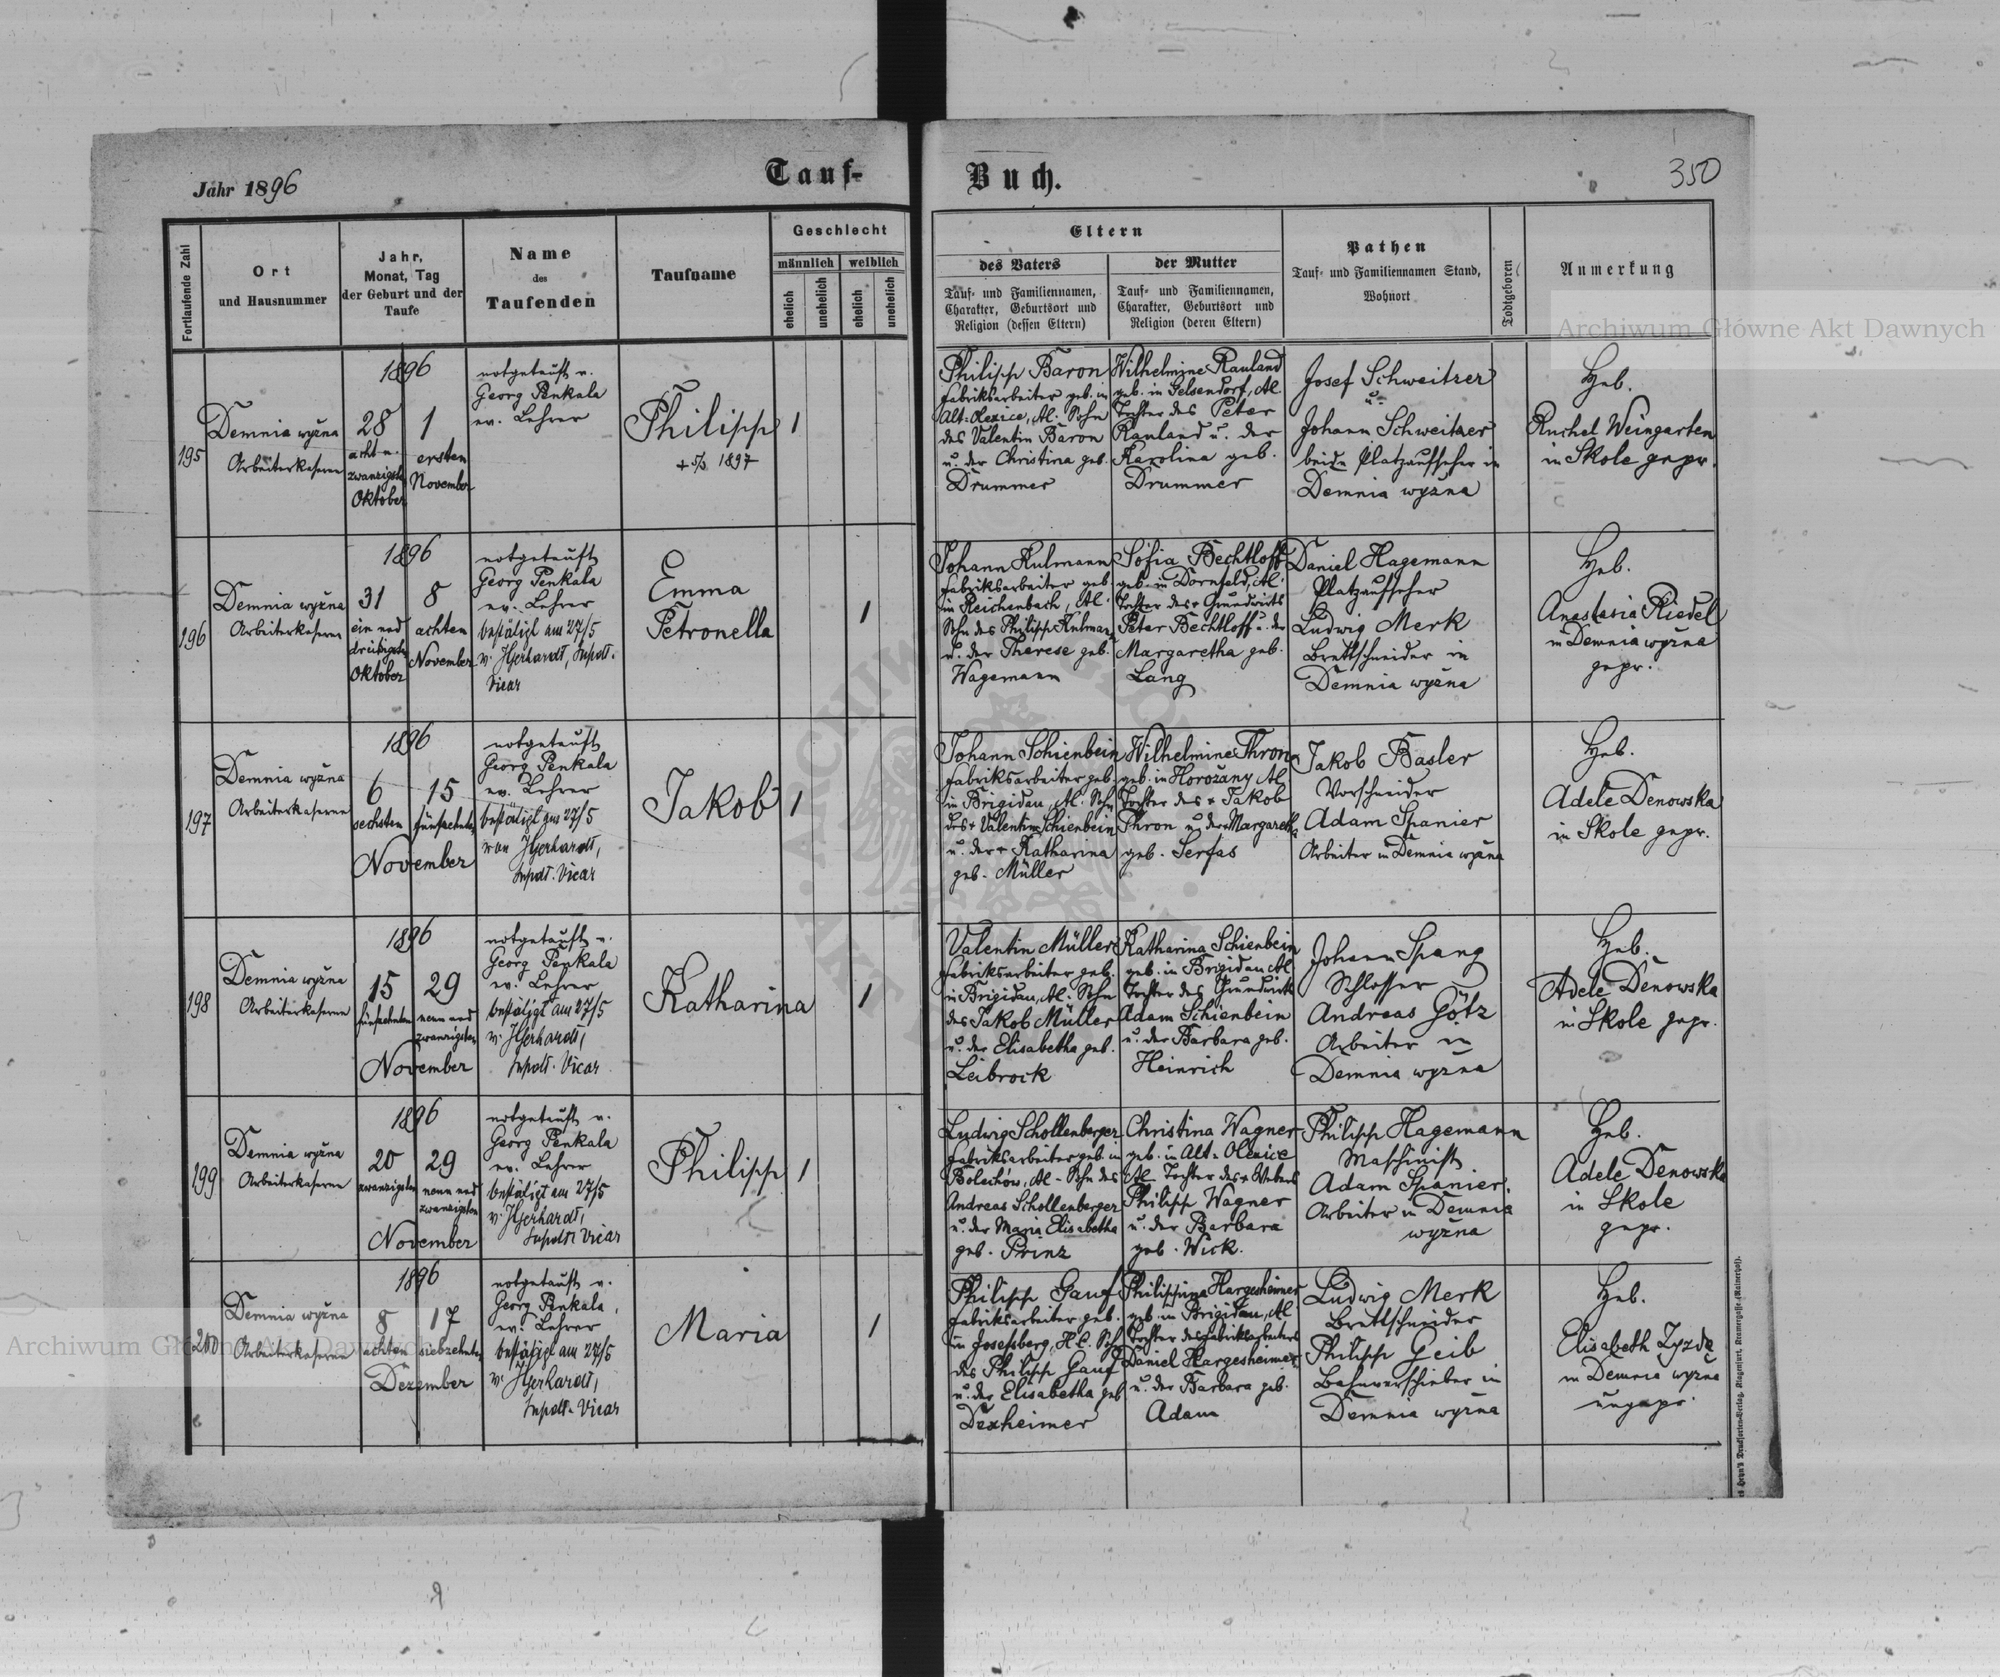 Jahr 1896
Tauf-
Buch.
350
Fortlaufende Zahl
Ort
und Hausnummer
Jahr,
Monat, Tag
der Geburt und der
Taufe
Name
des
Taufenden
Taufname
Geschlecht
männlich weiblich
ehelich
unehelich
ehelich
unehelich
Eltern
des Vaters
Tauf- und Familiennamen,
Charakter, Geburtsort und
Religion (dessen Eltern)
der Mutter
Tauf- und Familiennamen,
Charakter, Geburtsort und
Religion (deren Eltern)
Pathen
Tauf- und Familiennamen Stand,
Wohnort
Todtgeboren
Anmerkung
Archiwum Główne Akt Dawnych
195
Demnia wyżna
Arbeiterkaserne
1896
28 1
acht u. ersten
zwanzigste November
Oktober
notgetauft v.
Georg Penkala
ev. Lehrer
Philipp
1897
1
Philipp Baron
Fabriksarbeiter geb. in
Alt-Olexice, Al. Sohn
des Valentin Baron
u. der Christina geb.
Drummer
Wilhelmine Rauland
geb. in Gelsendorf, Al.
Tochter des Peter
Rauland u. der
Karolina geb.
Drummer
Josef Schweitzer
u.
Johann Schweitzer
beide Platzaufseher in
Demnia wyżna
Heb.
Ruchel Weingarten
in Skole gepr.
196
Demnia wyżna
Arbeiterkaserne
1896
31 8
ein und achten
dreißigste November
Oktober
notgetauft
Georg Penkala
ev. Lehrer
bestätigt am 27/5
v. JGerhardt, Supdt.
Vicar
Emma
Petronella
1
Johann Kulmann
Fabriksarbeiter geb.
in Reichenbach, Al.
Sohn des Philipp Kulmann
u. der Therese geb.
Wagemann
Sofia Bechtloff
geb. in Dornfeld, Al.
Tochter des + Grundwirts
Peter Bechtloff u. der
Margaretha geb.
Lang
Daniel Hagemann
Platzaufseher
Ludwig Merk
Brettschneider in
Demnia wyżna
Heb.
Anastasia Riedel
in Demnia wyżna
gepr.
197
Demnia wyżna
Arbeiterkaserne
1896
6 15
sechsten fünfzehnten
November
notgetauft
Georg Penkala
ev. Lehrer
bestätigt am 27/5
von JGerhardt,
Supdt. Vicar
Jakob
1
Johann Schienbein
Fabriksarbeiter geb.
in Brigidau, Al. Sohn
des + Valentin Schienbein
u. der + Katharina
geb. Müller
Wilhelmine Thron
geb. in Horożany Al.
Tochter des + Jakob
Thron u. der Margareth
geb. Serfas
Jakob Basler
Vorschneider
Adam Spanier
Arbeiter in Demnia wyżna
Heb.
Adele Denowska
in Skole gepr.
198
Demnia wyżna
Arbeiterkaserne
1896
15 29
fünfzehnten neun und
zwanzigsten
November
notgetauft v.
Georg Penkala
ev. Lehrer
bestätigt am 27/5
v. JGerhardt,
Supdt. Vicar
Katharina
1
Valentin Müller
Fabriksarbeiter geb.
in Brigidau, Al. Sohn
des Jakob Müller
u. der Elisabetha geb.
Leibrock
Katharina Schienbein
geb. in Brigidau Al
Tochter des Grundwirts
Adam Schienbein
u. der Barbara geb.
Heinrich
Johann Spang
Schlosser
Andreas Götz
Arbeiter in
Demnia wyżna
Heb.
Adele Denowska
in Skole gepr.
199
Demnia wyżna
Arbeiterkaserne
1896
20 29
zwanzigsten neun und
zwanzigsten
November
notgetauft v.
Georg Penkala
ev. Lehrer
bestätigt am 27/5
v. JGerhardt,
Supdt. Vicar
Philipp
1
Ludwig Schollenberger
Fabriksarbeiter geb. in
Bolechów, Al - Sohn des
Andreas Schollenberger
u. der Maria Elisabetha
geb. Prinz
Christina Wagner
geb. in Alt-Olexice
Al Tochter des + Webers
Philipp Wagner
u. der Barbara
geb. Wick.
Philipp Hagemann
Maschinist
Adam Spanier
Arbeiter in Demnia
wyżna
Heb.
Adele Denowska
in Skole
gepr.
200
Demnia wyżna
Arbeiterkaserne
1896
8 17
achten siebzehnten
Dezember
notgetauft v.
Georg Penkala,
ev. Lehrer
bestätigt am 27/5
v. JGerhardt,
Supdt. Vicar
Maria
1
Philipp Gauf
Fabriksarbeiter geb.
in Josefsberg, H.C. Sohn
des Philipp Gauf
u. der Elisabetha geb
Dexheimer
Philippina Hargesheimer
geb. in Brigidau, Al
Tochter des Fabriksarbeiters
Daniel Hargesheimer
u. der Barbara geb.
Adam
Ludwig Merk
Brettschneider
Philipp Geib
Bahnverschieber in
Demnia wyżna
Heb.
Elisabeth Zyzda
in Demnia wyżna
ungepr.
Archiwum Główne Akt Dawnych